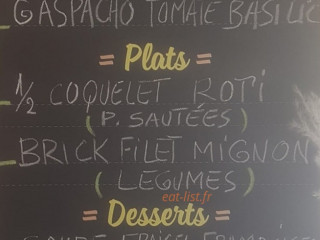 GASPACHO TOMATE BASILIC
= Plats =
1/2 COQUELET ROTI
( P. SAUTÉES )
BRICK FILET MIGNON
( LEGUMES )
eat-list.fr
= Desserts =